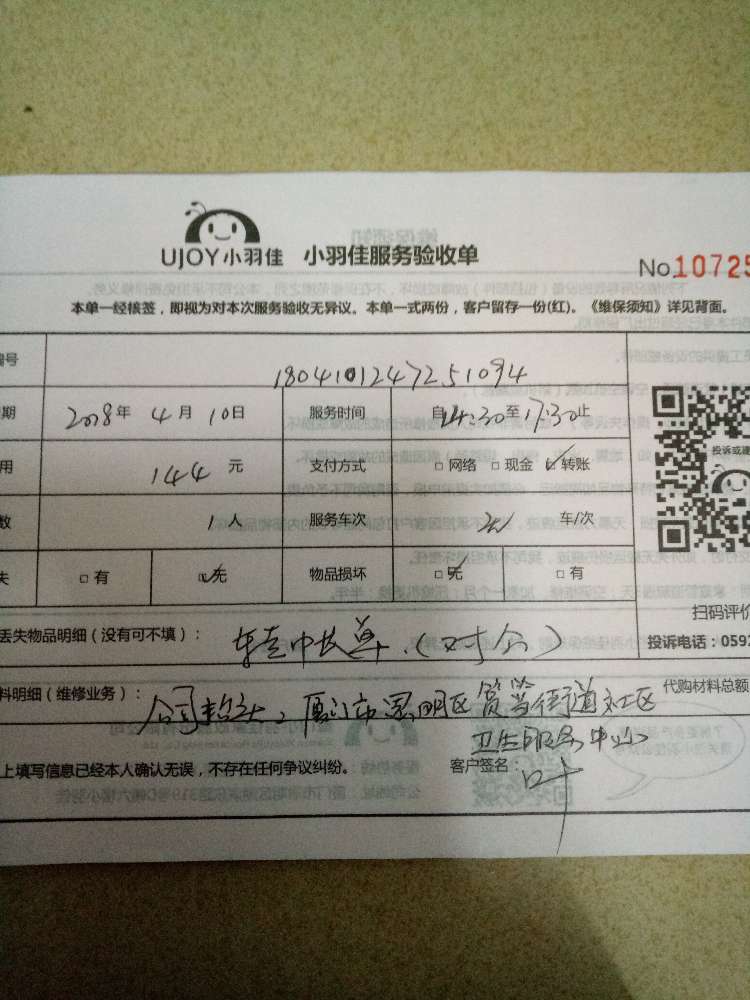 UJOY小羽佳 小羽佳服务验收单
No.10725
本单一经核签，即视为对本次服务验收无异议。本单一式两份，客户留存一份(红)。《维保须知》详见背面。
号 1804101247251094
期 2018年 4月 10日 服务时间 自14:30至17:30止
用 144 元 支付方式 □网络 □现金 ☑转账
投诉或建
数 1人 服务车次 车/次
失 □有 ☑无 物品损坏 ☑无 □有
扫码评价
丢失物品明细（没有可不填）： （对公）
投诉电话：0592
料明细（维修业务）： 公司抬头：厦门市思明区筼筜街道社区
代购材料总额
卫生服务中心
上填写信息已经本人确认无误，不存在任何争议纠纷。 客户签名： 叶